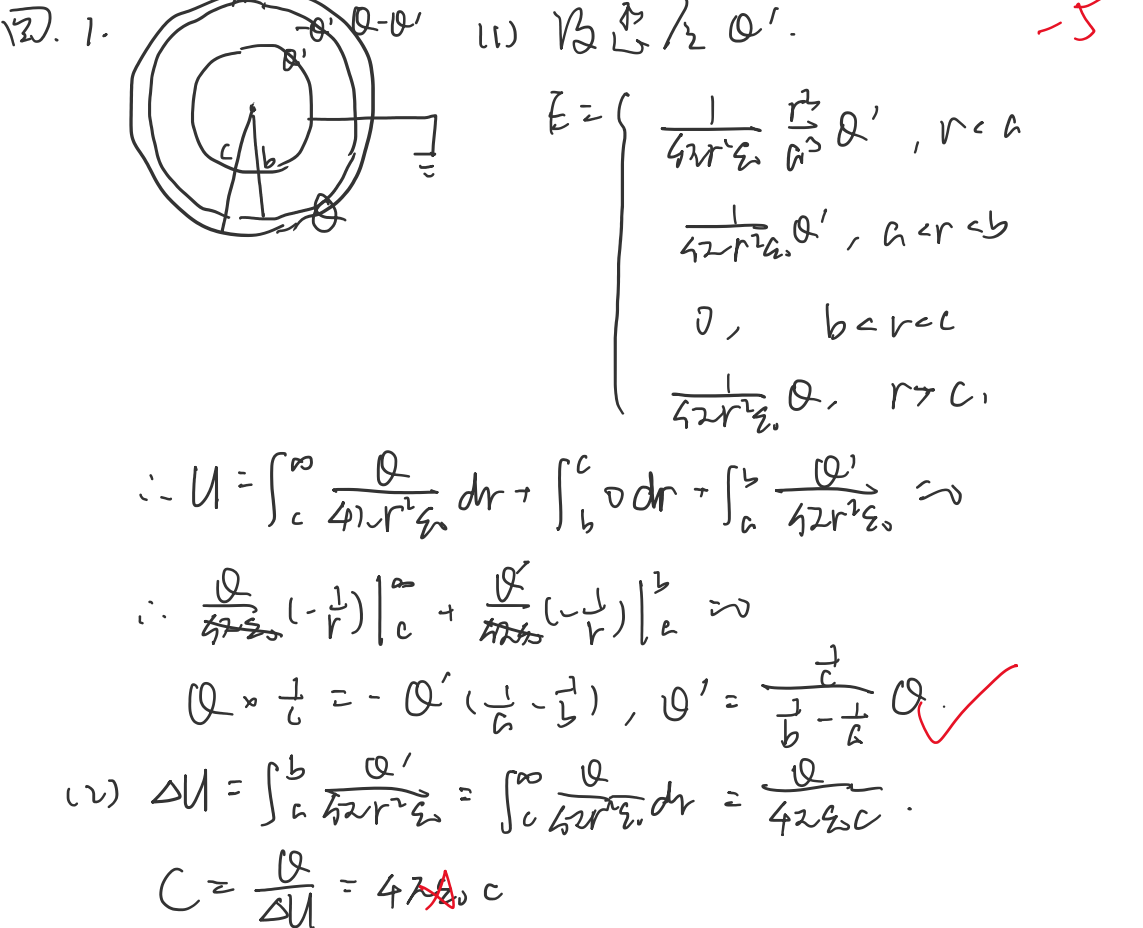 四. 1.
-Q' Q-Q'
Q'
c b
Q
(1) 设总位 Q'.
-5
E = { 1/(4πr²ε₀) r³/a³ Q' , r < a
1/(4πr²ε₀) Q' , a < r < b
0 , b < r < c
1/(4πr²ε₀) Q, r > c.
∴ U = ∫_c^∞ Q/(4πr²ε₀) dr + ∫_b^c 0 dr + ∫_a^b Q'/(4πr²ε₀) = 0
∴ Q/(4πε₀) (-1/r) |_c^∞ + Q'/(4πε₀) (-1/r) |_a^b = 0
Q × 1/c = - Q' (1/a - 1/b) , Q' = (1/c)/(1/b - 1/a) Q.
(2) ΔU = ∫_a^b Q'/(4πr²ε₀) = ∫_c^∞ Q/(4πr²ε₀) dr = Q/(4πε₀c) .
C = Q/ΔU = 4πε₀ c